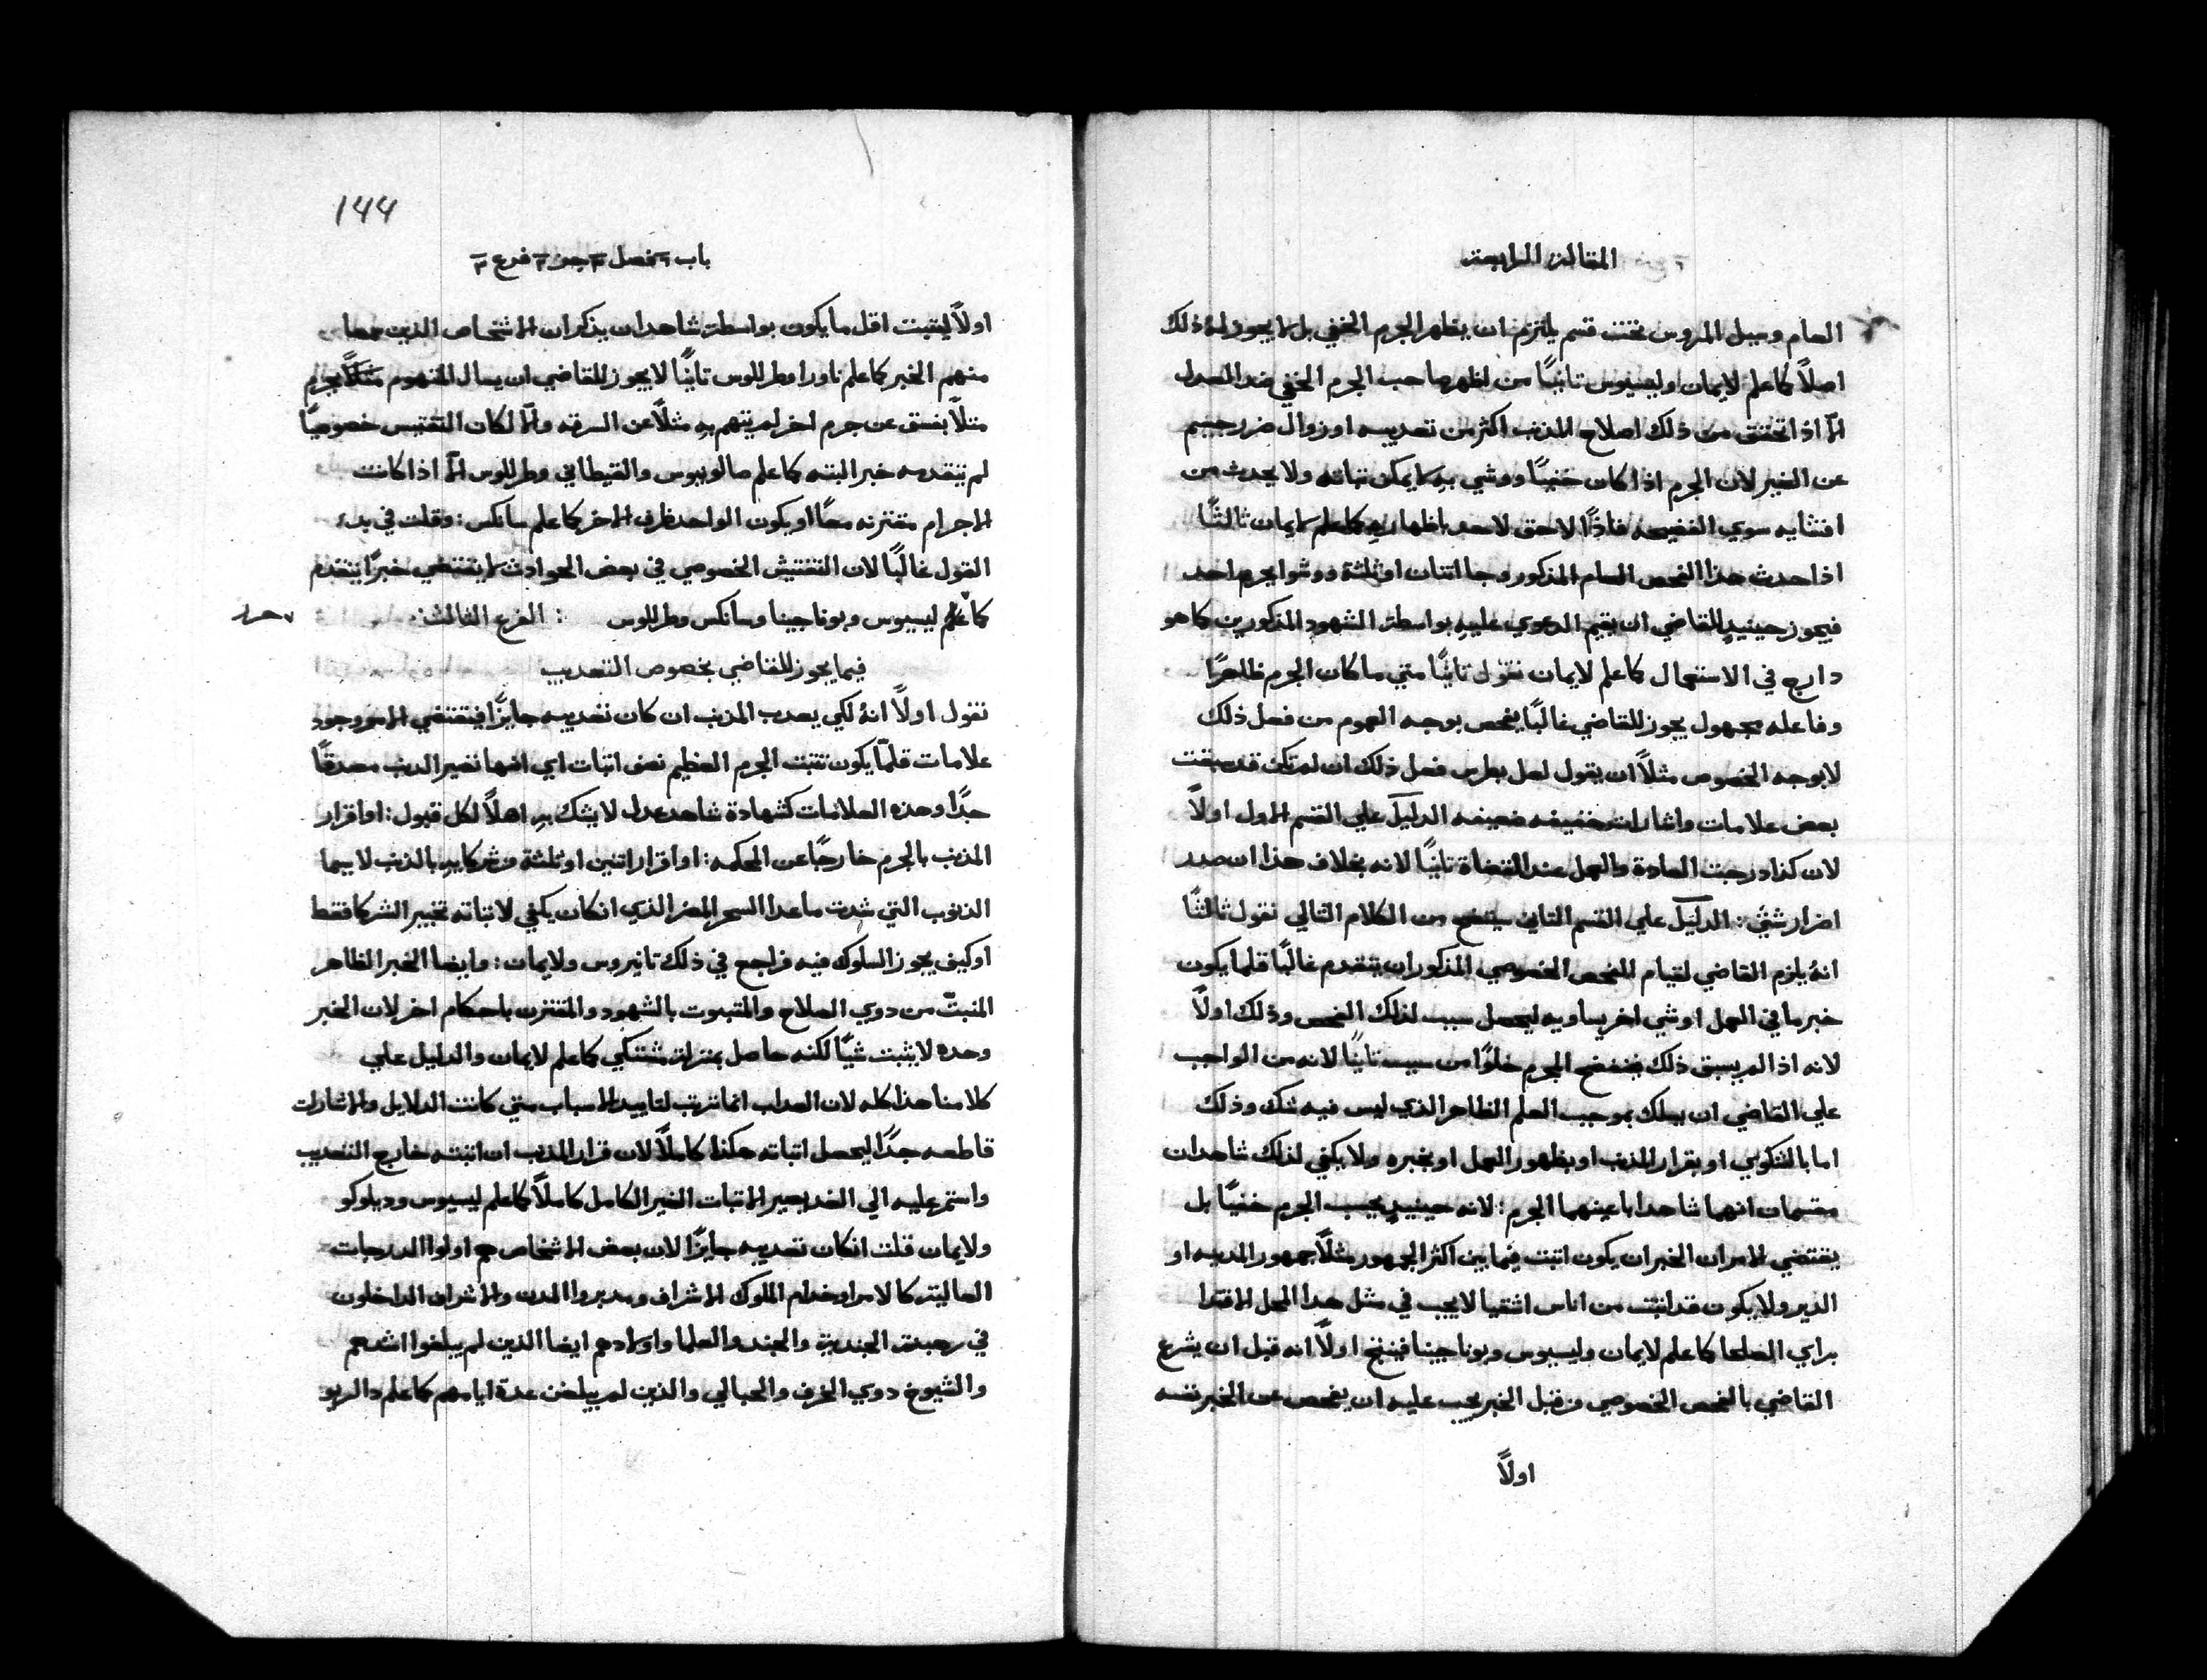 المقالة الرابعة
العام وسيل المروس تحتت قسم يلتزم ان يظهر الجرم الخفي بل لا يجوز له ذلك
اصلاً كما علم لايمان وليسيوس تانيًا من اظهر صاحب الجرم الخفي ضد العدل
الّا اذا تحتق من ذلك اصلاح المذنب اكثر من تعديبه او زوال ضرر جسيم
عن الغير لان الجرم اذا كان خفيًا ووشي بهِ لا يمكن تباته ولا يحدث من
افتايه سوي الفضيحه فاذًا لا حق لاحد باظهارهِ كما علم لايمان ثالثًا
اذا حدث هذا الفحص العام المذكور وجا اتنان او ثلثة ووشوا بجرم احد
فيجوز حينيدٍ للقاضي ان يقيم الدعوي عليهِ بواسطة الشهود المذكورين كما هو
دارج في الاستعمال كما علم لايمان نقول تانيًا متي ما كان الجرم ظاهرًا
وفاعله مجهول يجوز للقاضي غالبًا يفحص بوجه العموم من فعل ذلك
لا بوجه الخصوص مثلاً ان يقول لعل بطرس فعل ذلك ان لم تكن قد سبقت
بعض علامات واشارات خفيفه ضعيفه الدليل علي القسم الاول اولاً
لان كذا درجت العادة والعمل عند القضاة تانيًا لانه بخلاف هذا ان صدر
اضرار شتي: الدليل علي القسم التاني سيتضح من الكلام التالي نقول ثالثًا
انهُ يلزم القاضي لقيام الفحص الخصوصي المذكور ان يتقدم غالبًا قلما يكون
خبر ما في العمل او شي اخر يساويه ليحصل سبب لذلك الفحص وذلك اولاً
لانه اذا لم يسبق ذلك يفتضح الجرم خلوًا من سبب تانيًا لانه من الواجب
علي القاضي ان يسلك بموجب العلم الظاهر الذي ليس فيه شك وذلك
اما بالشكوي او بقرار المذنب او بظهور العمل او بخبره ولا يكفي لذلك شاهدان
مقسمان انهما شاهدا باعينهما الجرم: لانه حينيدٍ يحسب الجرم خفيًا بل
يقتضي الامر ان الخبر ان يكون اتبت فيما بين اكثر الجمهور مثلاً جمهور المدينه او
الدير ولا يكون قد اتبت من اناس اشقيا لا يجب في مثل هذا العمل الاقتدا
براي الصلحا كما علم لايمان وليسيوس وبوناجينا فينتج اولاً انه قبل ان يشرع
القاضي بالفحص الخصوصي من قبل الخبر يجب عليه ان يفحص عن الخبر نفسه
اولاً
144
باب ٦ فصل ٣ جز ٣ فرع ٣
اولاً ليتبت اقل ما يكون بواسطة شاهدان يذكران الاشخاص الذين سمعا
منهم الخبر كما علم ناورا وطرللوس تانيًا لا يجوز للقاضي ان يسال المتهوم مثلاً بجرم
مثلاً بفسق عن جرم اخر لم يتهم بهِ مثلاً عن السرقه والّا لكان التفتيس خصوصيًا
لم يتقدمه خبر البته كما علم صالونيوس والقيطاني وطرللوس الّا اذا كانت
الاجرام مقترنه معًا او يكون الواحد ظرف الاخر كما علم سانكس: وقلت في بدء
القول غالبًا لان التفتيش الخصوصي في بعض الحوادث لا يقتضي خبرًا يتقدم
كما علم ليسيوس وبوناجينا وسانكس وطرللوس : الفرع الثالث
فيما يجوز للقاضي بخصوص التعديب
نقول اولاً انهُ لكي يعدب المذنب ان كان تعديبه جايزًا فيقتضي الامر وجود
علامات قلمّا يكون تتبت الجرم العظيم نصف اتبات اي انها تصير الدنب مصدقًا
جدًا وهذه العلامات كشهادة شاهد عدل لا يشك بهِ اهلاً لكل قبول: او اقرار
المذنب بالجرم خارجًا عن المحكمه: او اقرار اتنين او ثلثة من شركايهِ بالذنب لا سيما
الذنوب التي شدت ما عدا السحر المضر الذي ان كان يكفي لاتباته تخبير الشركا فقط
او كيف يجوز السلوك فيه فراجع في ذلك تانيروس ولايمان: وايضا الخبر الظاهر
المنبتّ من دوي الصلاح والمتبوت بالشهود والمقترن باحكام اخر لان الخبر
وحده لا يثبت شيًا لكنه حاصل بمنزلة مشتكي كما علم لايمان والدليل علي
كلامنا هذا كله لان العداب انما ترتب لتاييد الاسباب متي كانت الدلايل والاشارات
قاطعه جدًا ليحصل اتباته هكذا كاملاً لان قرار المذنب ان اتبته خارج التعديب
واستمر عليه الي الغد يصير الاتبات الغير الكامل كاملاً كما علم ليسيوس ودبلوكو
ولايمان قلت ان كان تعديبه جايزًا لان بعض الاشخاص هم اولوا الدرجات
العاليه كالامرا وخدام الملوك الاشراف ومدبروا المدن والاشراف الداخلون
في رهبنة الجندية والجند والعلما واولادهم ايضا الذين لم يبلغوا اشدهم
والشيوخ دوي الخرف والحبالي والذين لم يبلغن عدة ايامهم كما علم دالريو